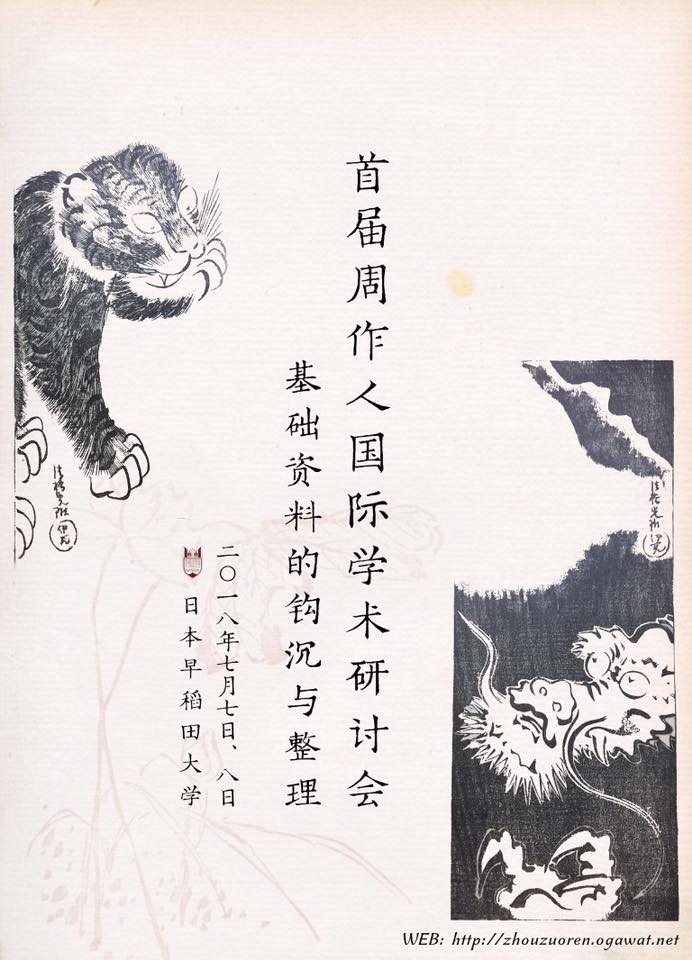 首届周作人国际学术研讨会
基础资料的钩沉与整理
二〇一八年七月七日、八日
日本早稻田大学
WEB: http://zhouzuoren.ogawat.net